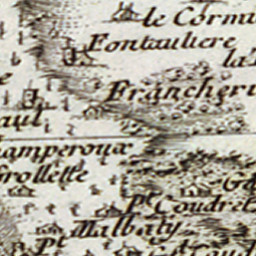 le Cormi
Fontauliere
la
Francheri
aul
amperoux
Grollette
Pt Coudret
Pt Malbaty
Gt Coud